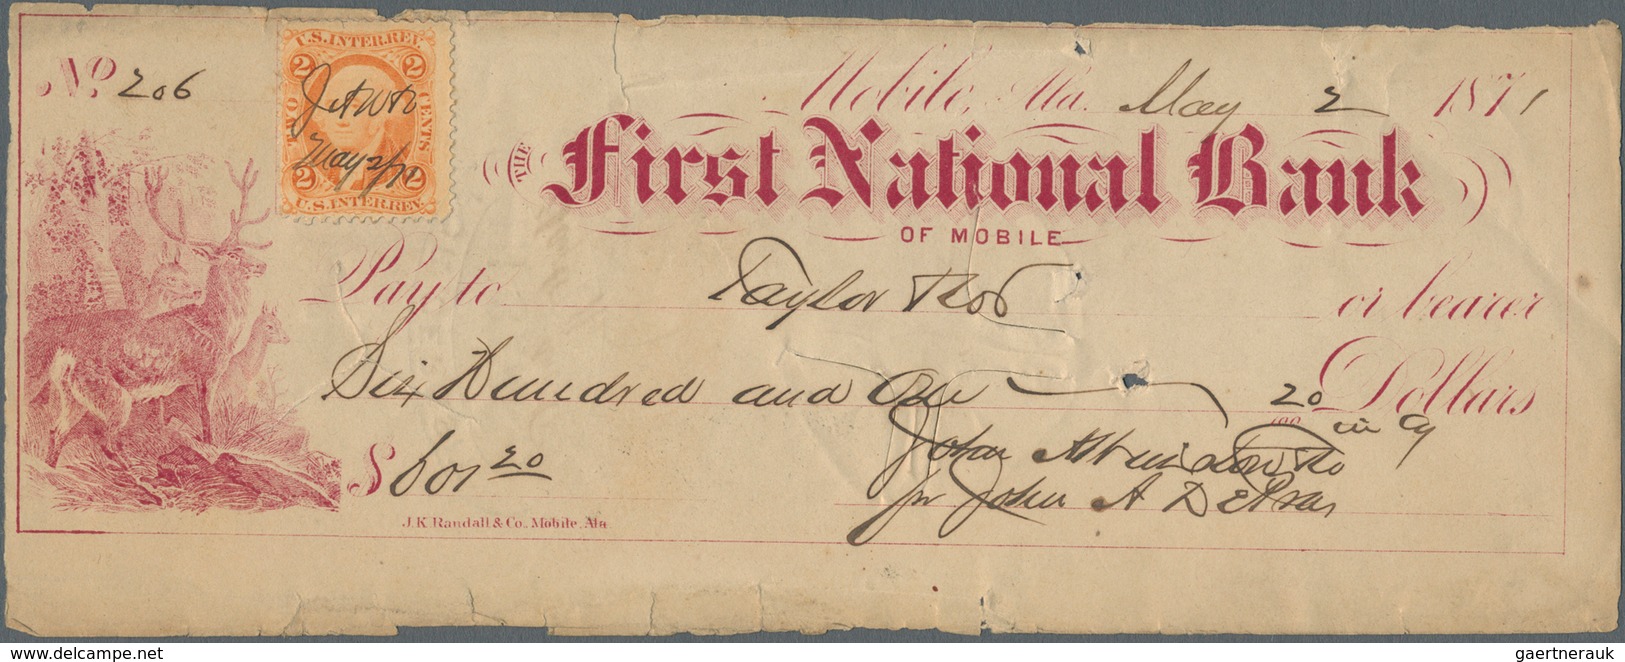 No. 206
U.S. INTER. REV.
2 2
TWO CENTS
May 2/71
2 2
U.S. INTER. REV.
Mobile, Ala. May 2 1871
THE First National Bank
OF MOBILE
Pay to Taylor or bearer
Six Hundred and One 20/100 Dollars
in Cy
$601 20
John
pr John A
J.K. Randall & Co., Mobile, Ala.
www.delcampe.net
gaertnerauk